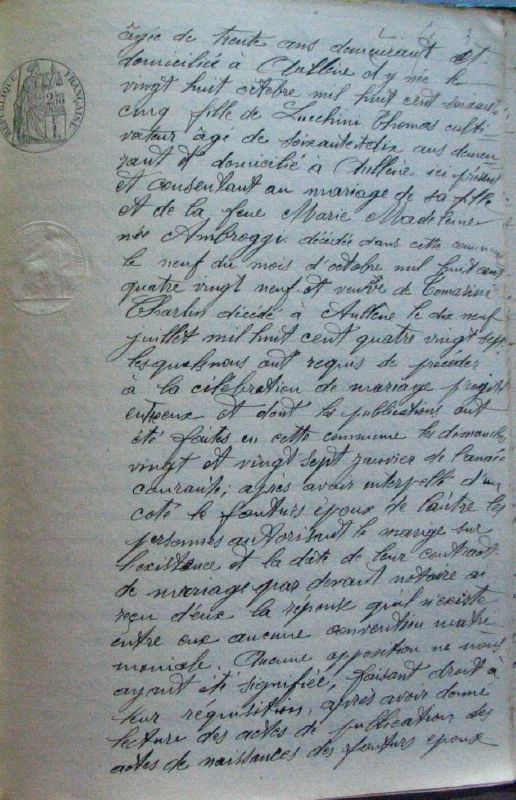 RÉPUBLIQUE FRANÇAISE
âgée de trente ans demeurant et
domiciliée à Aullène et y née le
vingt huit octobre mil huit cent soixante
cinq fille de Lucchini Thomas culti
vateur âgé de soixante dix ans demeu
rant et domicilié à Aullène ici présent
et consentant au mariage de sa fille
et de la feue Marie Madeleine
née Ambroggi décédée dans cette commune
le neuf du mois d'octobre mil huit cent
quatre vingt neuf et veuve de Tomasini
Charlin décédé à Aullène le dix neuf
juillet mil huit cent quatre vingt sept
lesquels nous ont requis de procéder
à la célébration de mariage projeté
entreux et dont les publications ont
été faites en cette commune les dimanches
vingt et vingt sept janvier de l'année
courante; après avoir interpellé d'un
coté le fouturs époux de l'autre les
personnes authorisant le marige sur
l'existence et la date de leur contrant
de mariage par devant notaire a
reçu d'eux la réponse qu'il n'existe
entre eux aucune convention matri
moniale. Aucune opposition ne nous
ayant été signifiée, faisant droit à
leur réquisition, après avoir donné
lecture des actes de publication des
actes de naissances des fouturs epoux